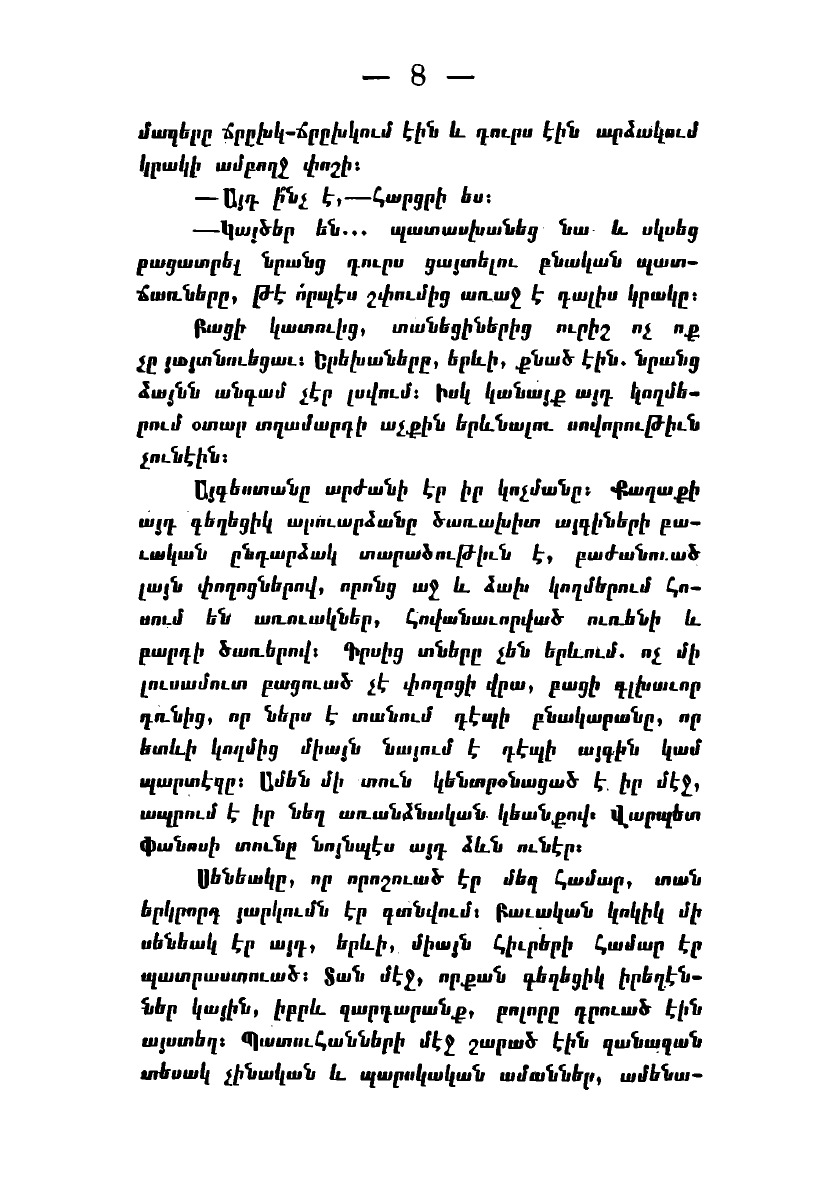 — 8 —
մազերը ճրըխկ-ճրըխկում էին և դուրս էին արձակում
կրակի ամբողջ փոշի։
— Այդ ի՞նչ է,—հարցրի ես։
—Կայծեր են... պատասխանեց նա և սկսեց
բացատրել նրանց դուրս ցայտելու բնական պատ-
ճառները, թէ ո՛րպէս շփումից առաջ է գալիս կրակը։
Բացի կատուից, տանեցիներից ուրիշ ոչ ոք
չը յայտնուեցաւ։ Երեխաները, երևի, քնած էին. նրանց
ձայնն անգամ չէր լսվում։ Իսկ կանայք այդ կողմե-
րում օտար տղամարդի աչքին երևնալու սովորութիւն
չունէին։
Այգեստանը արժանի էր իր կոչմանը։ Քաղաքի
այդ գեղեցիկ արուարձանը ծառախիտ այգիների բա-
ւական ընդարձակ տարածութիւն է, բաժանուած
լայն փողոցներով, որոնց աջ և ձախ կողմերում հո-
սում են առուակներ, հովանաւորված ուռենի և
բարդի ծառերով։ Դրսից տները չեն երևում. ոչ մի
լուսամուտ բացուած չէ փողոցի վրա, բացի գլխաւոր
դռնից, որ ներս է տանում դէպի բնակարանը, որ
ետևի կողմից միայն նայում է դէպի այգին կամ
պարտէզը։ Ամեն մի տուն կենտրօնացած է իր մէջ,
ապրում է իր նեղ առանձնական կեանքով։ Վարպետ
Փանոսի տունը նոյնպէս այդ ձևն ունէր։
Սենեակը, որ որոշուած էր մեզ համար, տան
երկրորդ յարկումն էր գտնվում։ Բաւական կոկիկ մի
սենեակ էր այդ, երևի, միայն հիւրերի համար էր
պատրաստուած։ Տան մէջ, որքան գեղեցիկ իրեղէն-
ներ կային, իբրև զարդարանք, բոլորը դրուած էին
այստեղ։ Պատուհանների մէջ շարած էին զանազան
տեսակ չինական և պարսկական ամաններ, ամենա-